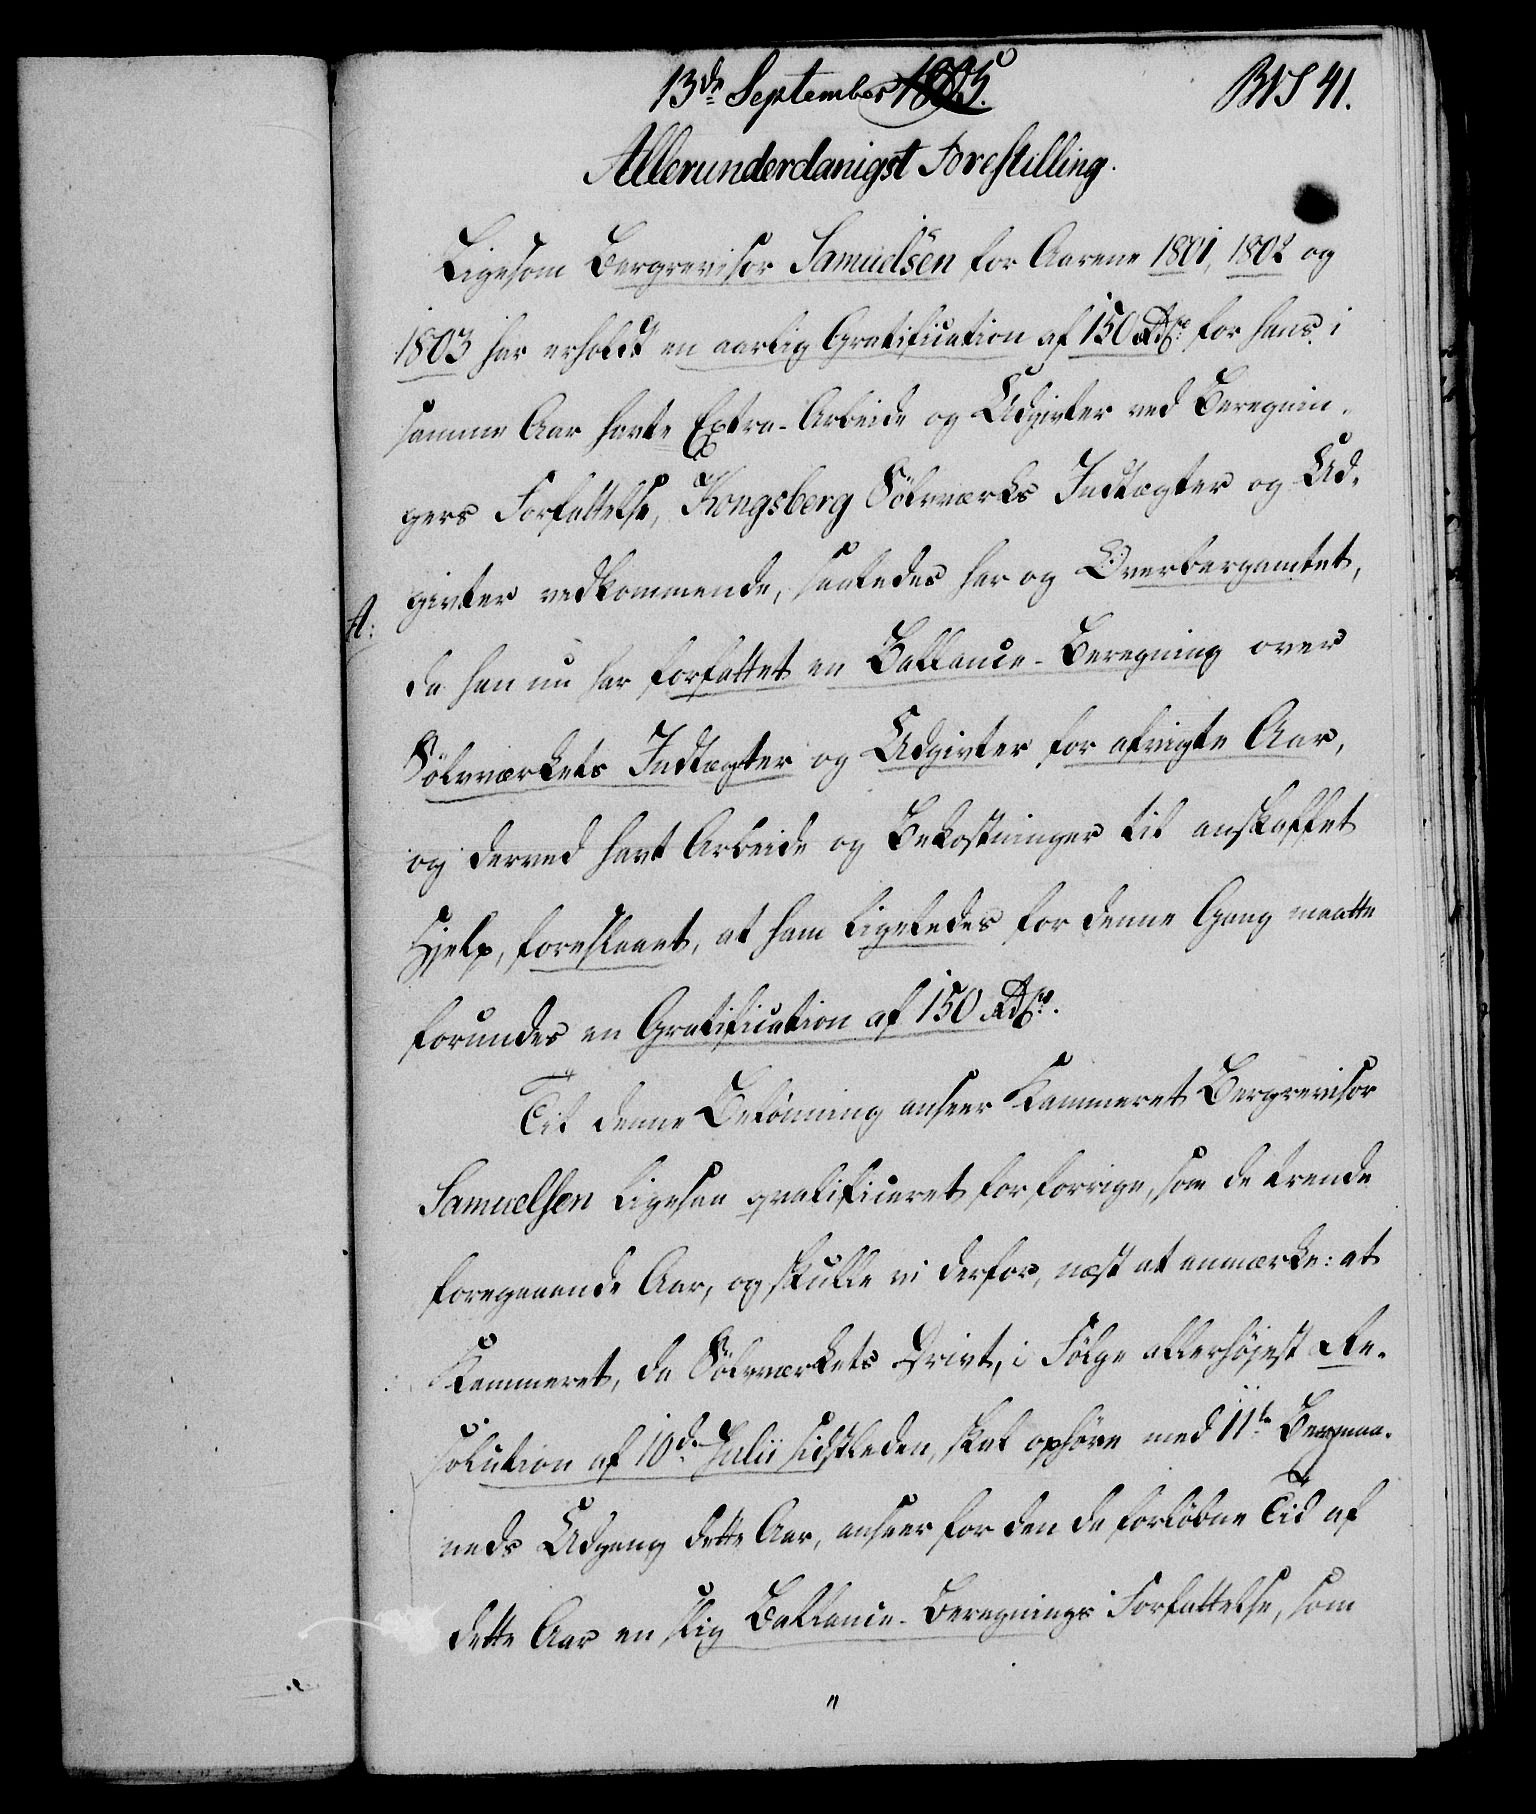 13de September 1805.
BVS 41.
Allerunderdanigst Forestilling.
Ligesom Bergrevisor Samuelsen for Aarene 1801, 1802 og
1803 har erholdt en aarlig Gratification af 150 Rdlr for hans i
samme Aar havte Extra-Arbeide og Udgivter ved Beregnin-
gers Forfattelse, Kongsberg Sölvværks Indtægter og Ud-
givter vedkommende, saaledes har og Overbergamtet,
A:
da han nu har forfattet en Ballance-Beregning over
Sölvværkets Indtægter og Udgivter for afvigte Aar,
og derved havt Arbeide og Bekostninger til anskaffet
Hjelp, foreslaaet, at ham ligeledes for denne Gang maatte
forundes en Gratification af 150 Rdlr.
Til denne Belönning anseer Kammeret Bergrevisor
Samuelsen ligesaa qvalificeret for forrige, som de trende
foregaaende Aar, og skulle vi derfor, næst at anmærke: at
Kammeret, da Sölvværkets Drivt, i Fölge allerhöjest Re-
solution af 10de Julii sidstleden, skal ophöre med 11te Bergmaa-
neds Udgang dette Aar, anseer for den da forlöbne Tid af
dette Aar en slig Ballance-Beregnings Forfattelse, som
"